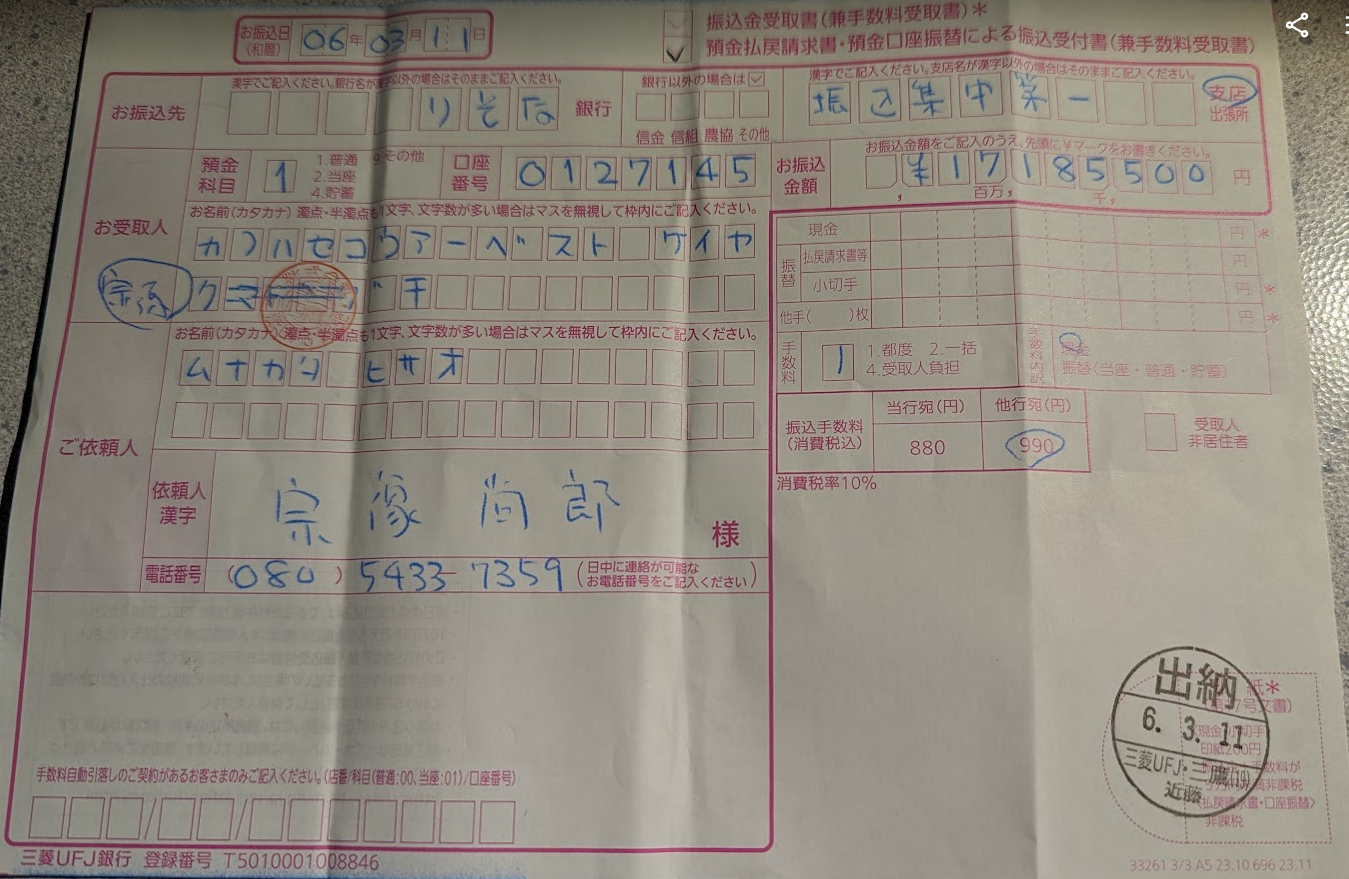 振込金受取書(兼手数料受取書)*
預金払戻請求書・預金口座振替による振込受付書(兼手数料受取書)
お振込日(和暦) 06年03月11日
お振込先
漢字でご記入ください。銀行名が漢字以外の場合はそのままご記入ください。
りそな 銀行
銀行以外の場合は
信金 信組 農協 その他
漢字でご記入ください。支店名が漢字以外の場合はそのままご記入ください。
振込集中第一 支店
出張所
お受取人
預金科目 1 1.普通 9.その他
2.当座
4.貯蓄
口座番号 0127145
お振込金額
お振込金額をご記入のうえ、先頭に¥マークをお書きください。
¥17185500 円
百万, 千,
お名前(カタカナ) 濁点・半濁点も1文字、文字数が多い場合はマスを無視して枠内にご記入ください。
カ)ハセコウアーベスト ケイヤ
宗像
ク
ご依頼人
お名前(カタカナ) 濁点・半濁点も1文字、文字数が多い場合はマスを無視して枠内にご記入ください。
ムナカタ ヒサオ
依頼人漢字
宗像尚郎 様
電話番号 (080) 5433-7359 (日中に連絡が可能なお電話番号をご記入ください)
現金 円*
振替
払戻請求書等 円
小切手 円*
他手( )枚 円*
手数料 1 1.都度 2.一括
4.受取人負担
手数料内訳
現金
振替(当座・普通・貯蓄)
振込手数料(消費税込)
当行宛(円) 他行宛(円)
880 990
消費税率10%
受取人非居住者
手数料自動引落しのご契約があるお客さまのみご記入ください。(店番/科目(普通:00、当座:01)/口座番号)
出納
6. 3. 11
三菱UFJ・三鷹(10)
近藤
紙*
印紙200円
手数料が
非課税
払戻請求書・口座振替〉
非課税
三菱UFJ銀行 登録番号 T5010001008846
33261 3/3 A5 23.10 696 23.11